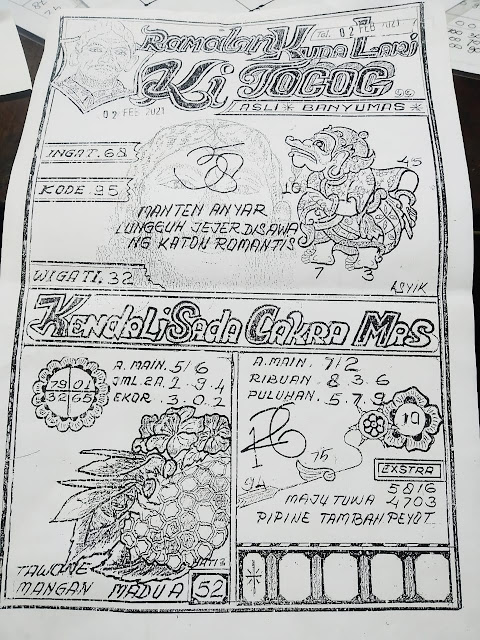 Ramalan Kuda Lari
Tgl. 02 FEB 2021
Ki TOGOG
02 FEB 2021
ASLI * BANYUMAS *
INGAT. 68
KODE. 95
WIGATI. 32
MANTEN ANYAR
LUNGGUH JEJER DISAWA
NG KATON ROMANTIS
45
10
7
3
ASYIK
KENDALI SADA CAKRA MAS
79 01
32 65
A. MAIN. 5/6
JML. 2A. 2 9 4
EKOR. 3. 0. 2
TAWONE
MANGAN MADU A
52
A. MAIN. 7/2
RIBUAN. 8. 3. 6
PULUHAN. 5. 7. 9
19
15
94
EXSTRA
5816
4703
MAJU TUWA
PIPINE TAMBAH PEYOT